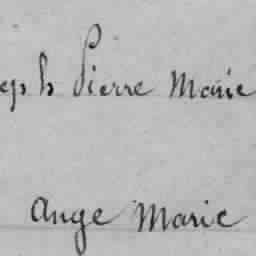 eph Pierre Marie
Ange Marie